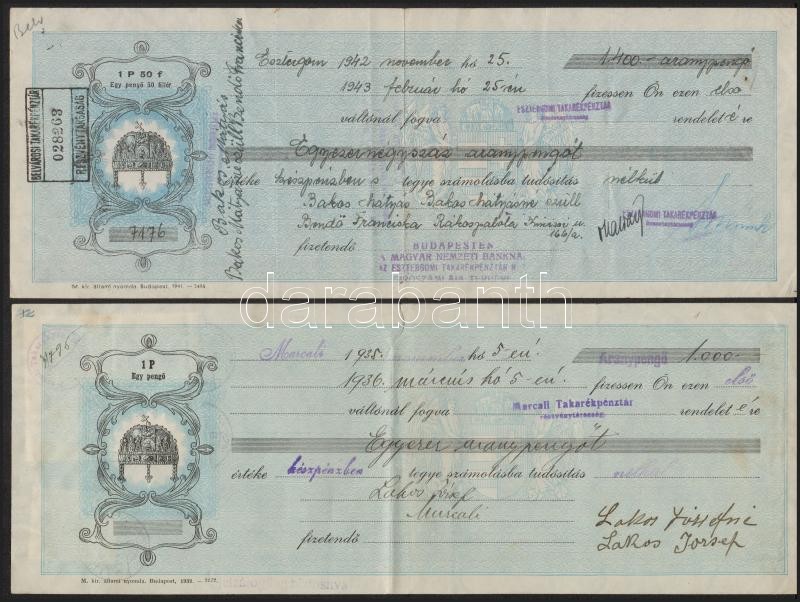 1 P 50 f
Egy pengő 50 fillér
BELVÁROSI TAKARÉKPÉNZTÁR
028263
RÉSZVÉNYTÁRSASÁG
7176
M. kir. állami nyomda. Budapest, 1941. —
Bakos Mátyásné szül. Bendó Franciska
Esztergom 1942 november hó 25. 1.400.- aranypengő
1943 február hó 25-én fizessen Ön ezen első
váltónál fogva ESZTERGOMI TAKARÉKPÉNZTÁR rendelet é re
részvénytársaság
Egyezernégyszáz aranypengőt
értéke készpénzben s tegye számolásba tudósítás nélkül
Bakos Mátyás Bakos Mátyásné szüll
Bendó Franciska Rákospalota Kinizsi u. 166/a.
ESZTERGOMI TAKARÉKPÉNZTÁR
részvénytársaság
fizetendő BUDAPESTEN
A MAGYAR NEMZETI BANKNÁL
AZ ESZTERGOMI TAKARÉKPÉNZTÁR
darabanth
1 P
Egy pengő
M. kir. állami nyomda. Budapest, 1932. —
Marcali 1935 november hó 5-én. Aranypengő 1.000.-
1936 március hó 5-én. fizessen Ön ezen első
váltónál fogva Marcali Takarékpénztár rendelet é re
részvénytársaság
Egyezer aranypengőt
értéke készpénzben tegye számolásba tudósítás nélkül
Lakos József
Marcali
fizetendő
Lakos Józsefné
Lakos József